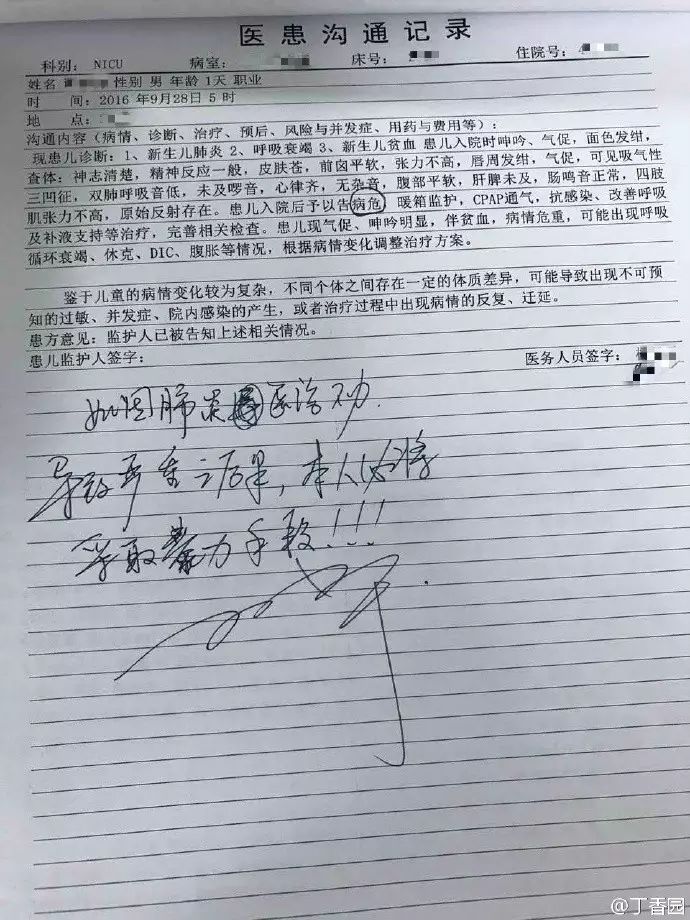 医患沟通记录
科别： NICU 病室： 床号： 住院号：
姓名 性别 男 年龄 1天 职业
时 间：2016 年9月28日 5 时
地 点：
沟通内容（病情、诊断、治疗、预后、风险与并发症、用药与费用等）：
现患儿诊断：1、新生儿肺炎 2、呼吸衰竭 3、新生儿贫血 患儿入院时呻吟、气促，面色发绀，
查体：神志清楚，精神反应一般，皮肤苍，前囟平软，张力不高，唇周发绀，气促，可见吸气性
三凹征，双肺呼吸音低，未及啰音，心律齐，无杂音，腹部平软，肝脾未及，肠鸣音正常，四肢
肌张力不高，原始反射存在。患儿入院后予以告病危，暖箱监护，CPAP通气，抗感染、改善呼吸
及补液支持等治疗，完善相关检查。患儿现气促、呻吟明显，伴贫血，病情危重，可能出现呼吸
循环衰竭、休克、DIC、腹胀等情况，根据病情变化调整治疗方案。
鉴于儿童的病情变化较为复杂，不同个体之间存在一定的体质差异，可能导致出现不可预
知的过敏、并发症、院内感染的产生，或者治疗过程中出现病情的反复、迁延。
患方意见：监护人已被告知上述相关情况。
患儿监护人签字： 医务人员签字：
如因肺炎医治不力
导致严重之后果，本人必将
采取暴力手段！！！
@丁香园